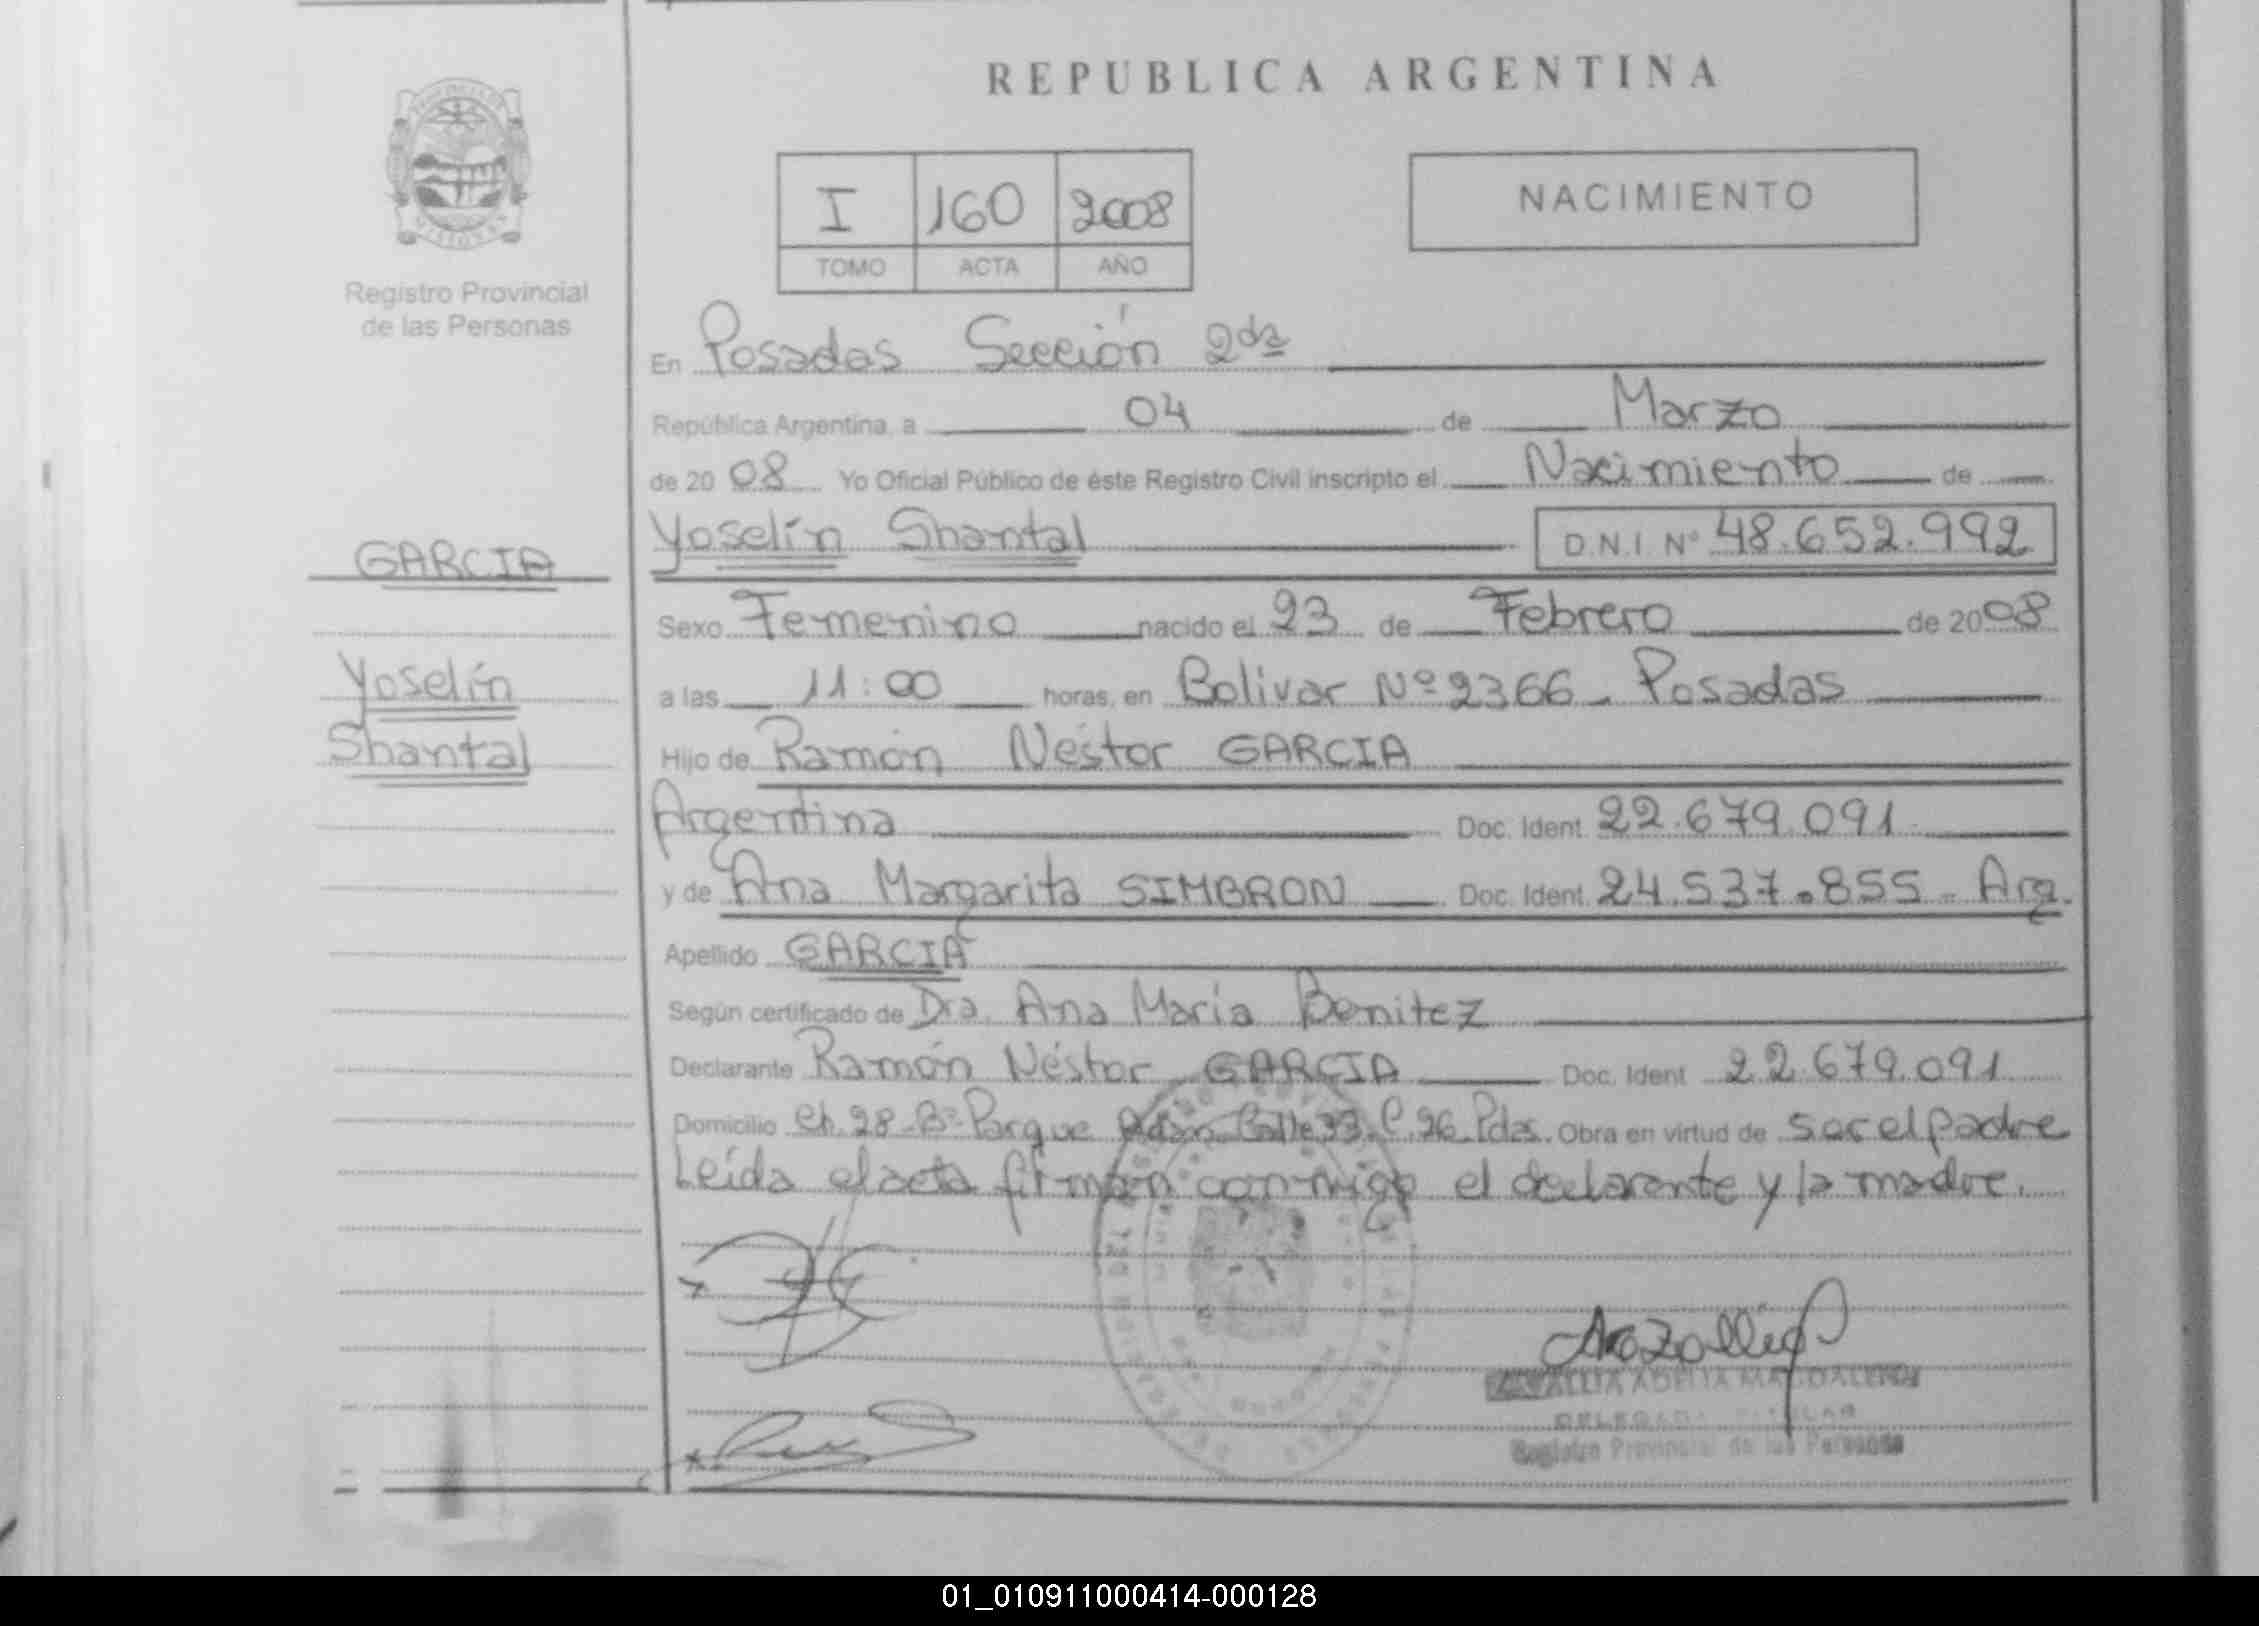 REPUBLICA ARGENTINA
MISIONES
Registro Provincial
de las Personas
I 160 2008
TOMO ACTA AÑO
NACIMIENTO
En Posadas Sección 2da
República Argentina, a 04 de Marzo
de 2008 Yo Oficial Público de éste Registro Civil inscripto el Nacimiento de
GARCIA
Yoselín Shantal D.N.I. Nº 48.652.992
Sexo Femenino nacido el 23 de Febrero de 2008
Yoselín
a las 11:00 horas, en Bolivar Nº 2366 - Posadas
Shantal
Hijo de Ramón Néstor GARCIA
Argentina Doc. Ident. 22.679.091
y de Ana Margarita SIMBRON Doc. Ident. 24.537.855 - Arg.
Apellido GARCIA
Según certificado de Dra. Ana María Benitez
Declarante Ramón Néstor GARCIA Doc. Ident 22.679.091
Domicilio Ch. 28-Bº Parque Calle 33. C. 26. Pdas. Obra en virtud de ser el padre
Leída el acta firman conmigo el declarante y la madre.
ADELIA MAGDALENA
Registro Provincial de las Personas
01_010911000414-000128